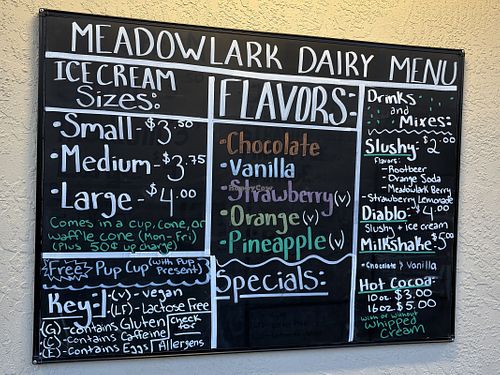 MEADOWLARK DAIRY MENU
ICE CREAM
Sizes:
•Small-$3.50
•Medium-$3.75
•Large-$4.00
Comes in a cup, cone, or
waffle cone (Mon-Fri)
(Plus 50¢ up charge)
Free! Pup Cup (with Pup Present)
Key:
(V)-vegan
(LF)-Lactose Free
(G)-contains Gluten
(C)-contains Caffeine
(E)-Contains Eggs
check for
Allergens
FLAVORS:
•Chocolate
•Vanilla
•Strawberry(v)
•Orange(v)
•Pineapple(v)
HappyCow
Specials:
Drinks
and
Mixes:
Slushy-$2.00
Flavors:
-Rootbeer
-Orange Soda
-Meadowlark Berry
-Strawberry Lemonade
Diablo-$4.00
Slushy + ice cream
Milkshake-$5.00
•Chocolate > Vanilla
Hot Cocoa:
10oz $3.00
16oz $5.00
with or without
Whipped
Cream